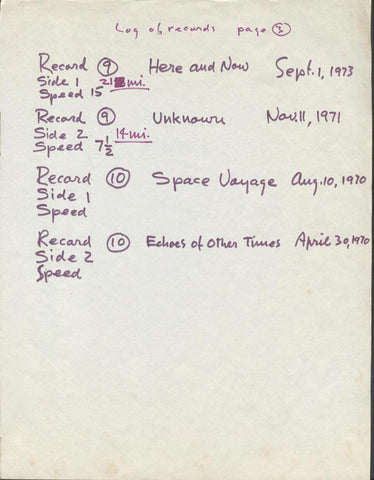 Log of records page ③
Record ⑨ Here and Now Sept. 1, 1973
Side 1 21 mi.
Speed 15
Record ⑨ Unknown Nov. 11, 1971
Side 2 14 mi.
Speed 7 1/2
Record ⑩ Space Voyage Aug. 10, 1970
Side 1
Speed
Record ⑩ Echoes of Other Times April 30, 1970
Side 2
Speed